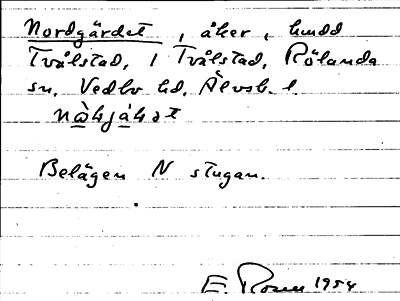 Nordgärdet, åker, hmdd
Tvålstad, 1 Tvålstad, Rölanda
sn, Vedbo hd, Älvsb. l.
Belägen N stugan.
E. Rosen 1954